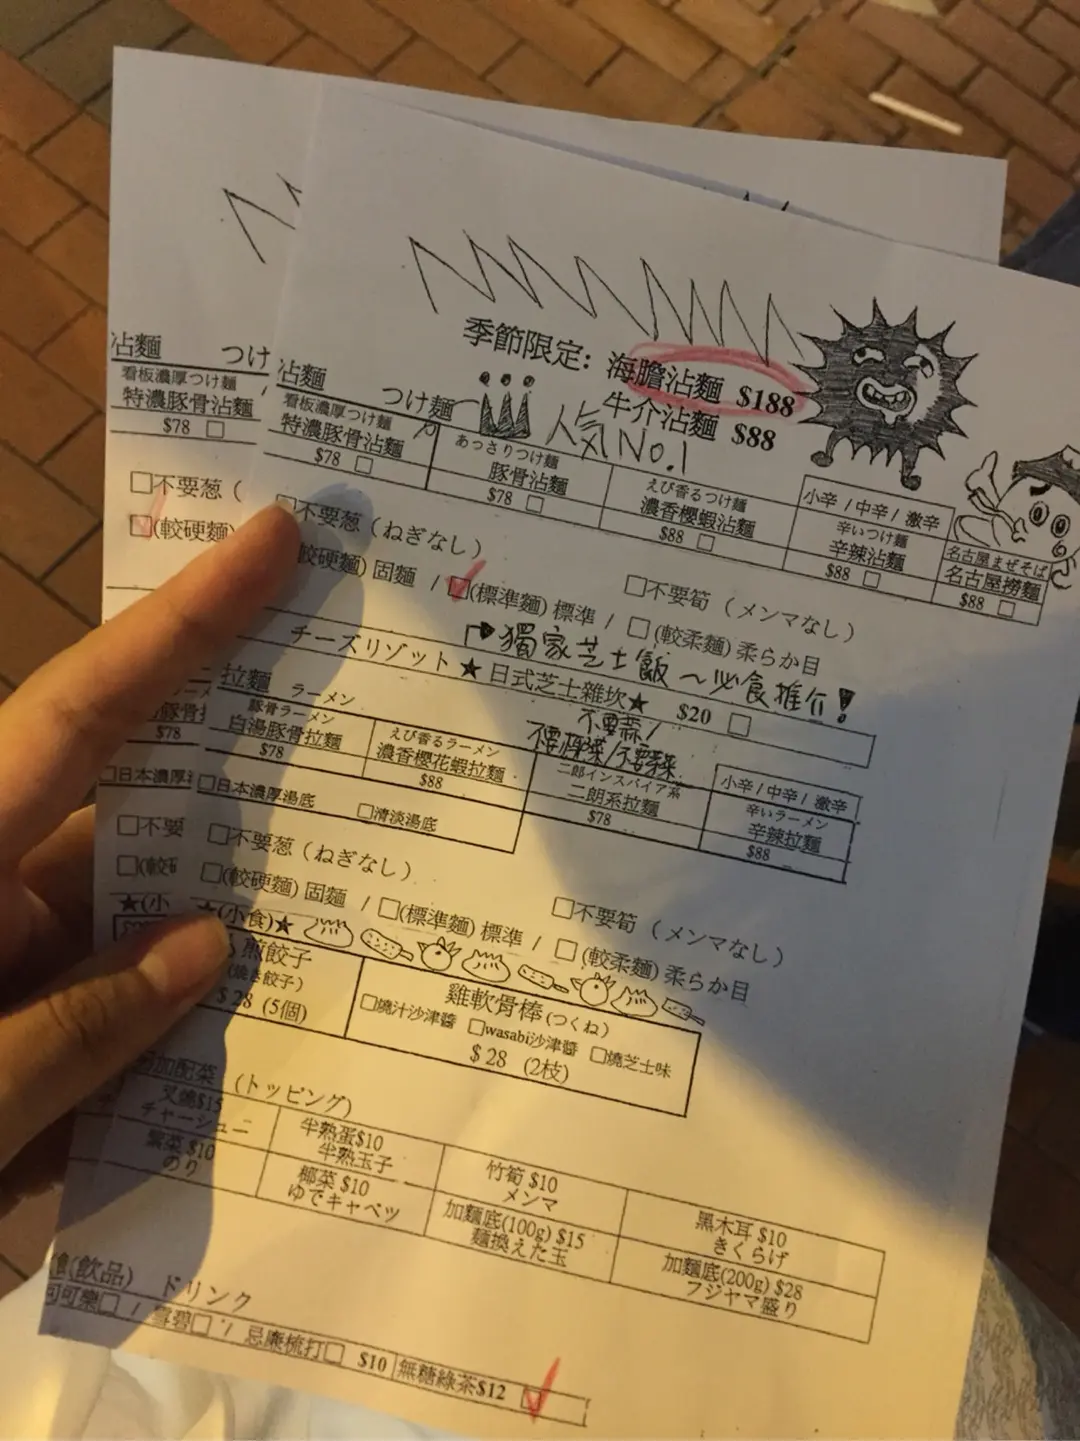 季節限定: 海膽沾麵 $188
牛介沾麵 $88
人気No.1
沾麵 つけ麵
看板濃厚つけ麺
特濃豚骨沾麵
$78 □
あっさりつけ麺
豚骨沾麵
$78 □
えび香るつけ麺
濃香櫻蝦沾麵
$88 □
小辛 / 中辛 / 激辛
辛いつけ麺
辛辣沾麵
$88 □
名古屋まぜそば
名古屋撈麵
$88 □
□不要葱 (ねぎなし) □不要筍 (メンマなし)
較硬麵) 固麵 / ☑(標準麵) 標準 / □(較柔麵) 柔らか目
獨家芝士飯~必食推介!
チーズリゾット ★ 日式芝士雜炊★ $20 □
拉麵 ラーメン
豚骨ラーメン
白湯豚骨拉麵
$78
えび香るラーメン
濃香櫻花蝦拉麵
$88
二郎インスパイア系
二朗系拉麵
$78
小辛 / 中辛 / 激辛
辛いラーメン
辛辣拉麵
$88
□日本濃厚湯底 □清淡湯底
□不要葱 (ねぎなし) □不要筍 (メンマなし)
□(較硬麵) 固麵 / □(標準麵) 標準 / □(較柔麵) 柔らか目
★(小食)★
煎餃子
(焼き餃子)
$28 (5個)
雞軟骨棒(つくね)
□燒汁沙津醬 □wasabi沙津醬 □燒芝士味
$28 (2枝)
加配菜 (トッピング)
叉燒$15
チャーシュー
半熟蛋$10
半熟玉子
竹筍 $10
メンマ
黑木耳 $10
きくらげ
紫菜 $10
のり
椰菜 $10
ゆでキャベツ
加麵底(100g) $15
麵換えた玉
加麵底(200g) $28
フジヤマ盛り
(飲品) ドリンク
可樂□ / 雪碧□ / 忌廉梳打□ $10 無糖綠茶$12 ☑
沾麵 つけ
看板濃厚つけ麺
特濃豚骨沾麵
$78 □
□不要葱 (
☑(較硬麵)
$78
□日本濃厚
□不要
★(小